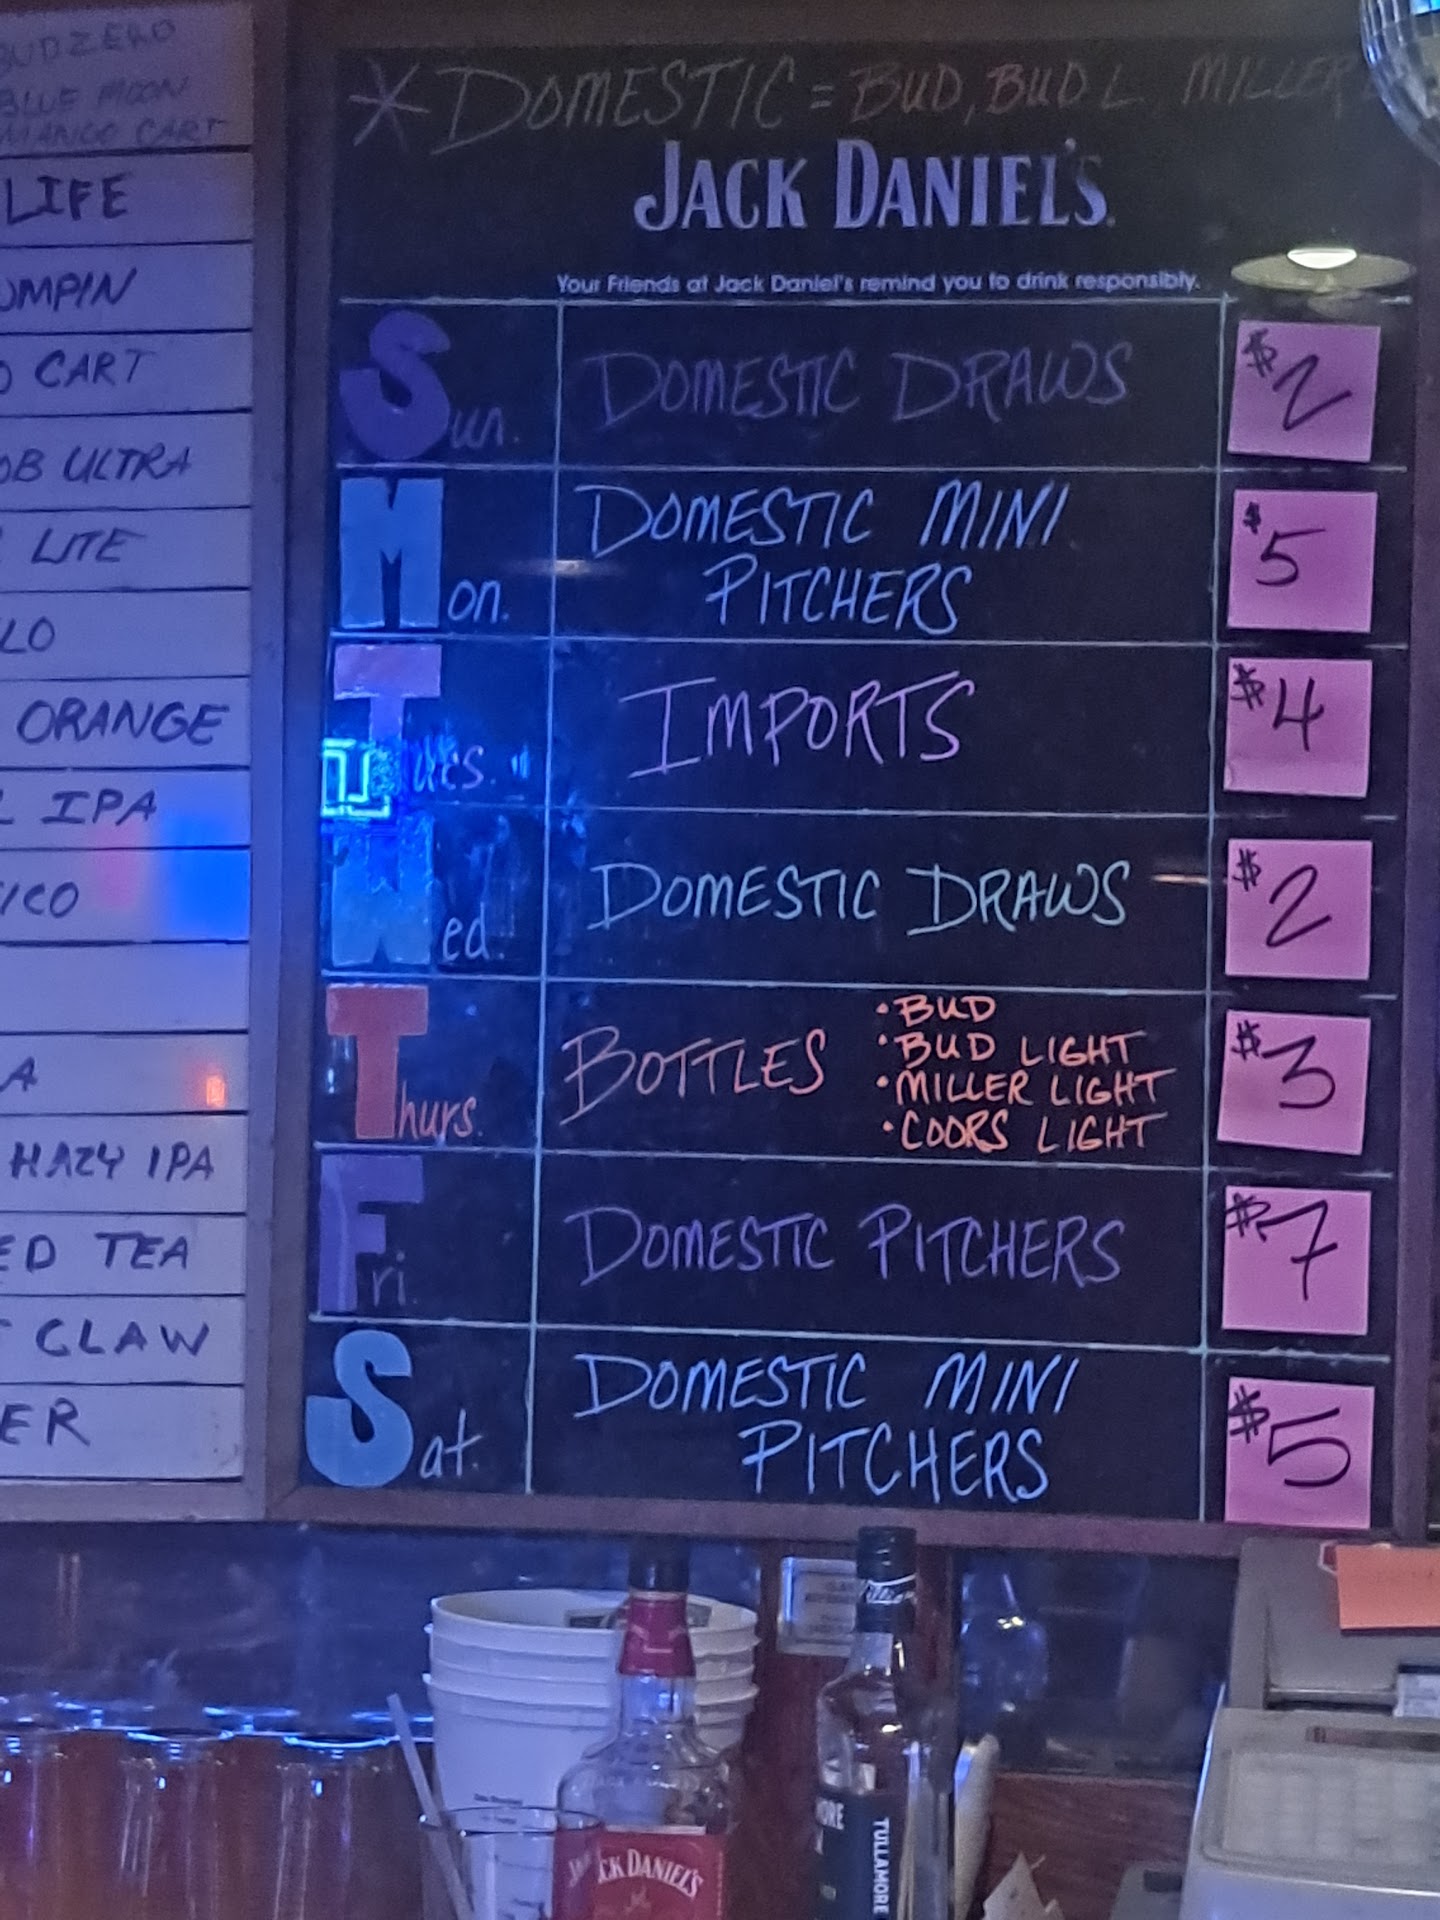 BUD ZERO
BLUE MOON
MANGO CART
LIFE
UMPIN
O CART
OB ULTRA
LITE
LO
ORANGE
L IPA
ICO
A
HAZY IPA
ED TEA
CLAW
ER
* DOMESTIC = BUD, BUD L, MILLER
JACK DANIEL'S
Your Friends at Jack Daniel's remind you to drink responsibly.
Sun. DOMESTIC DRAWS $2
Mon. DOMESTIC MINI
PITCHERS $5
Tues. IMPORTS $4
Wed. DOMESTIC DRAWS $2
Thurs. BOTTLES $3
• BUD
• BUD LIGHT
• MILLER LIGHT
• COORS LIGHT
Fri. DOMESTIC PITCHERS $7
Sat. DOMESTIC MINI
PITCHERS $5
JACK DANIEL'S
TULLAMORE